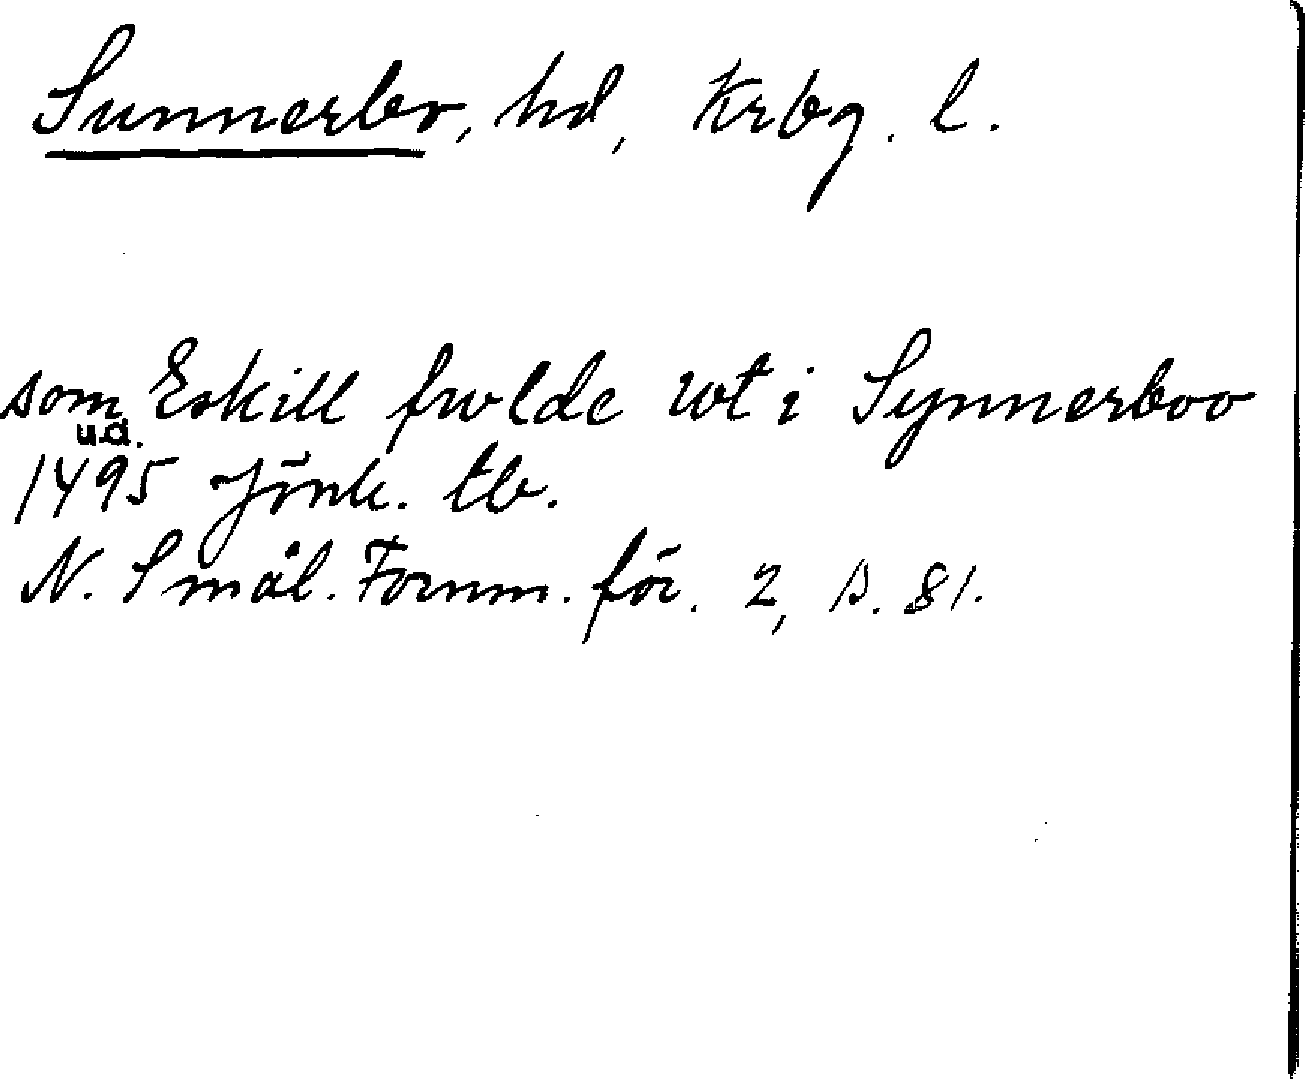 Sunnerbo, hd, Krbg. l.
som Eskill fwlde wt i Synnerboo
u.a.
1495 Jönk. tb.
N. Smål. Fornm. för. 2, s. 81.